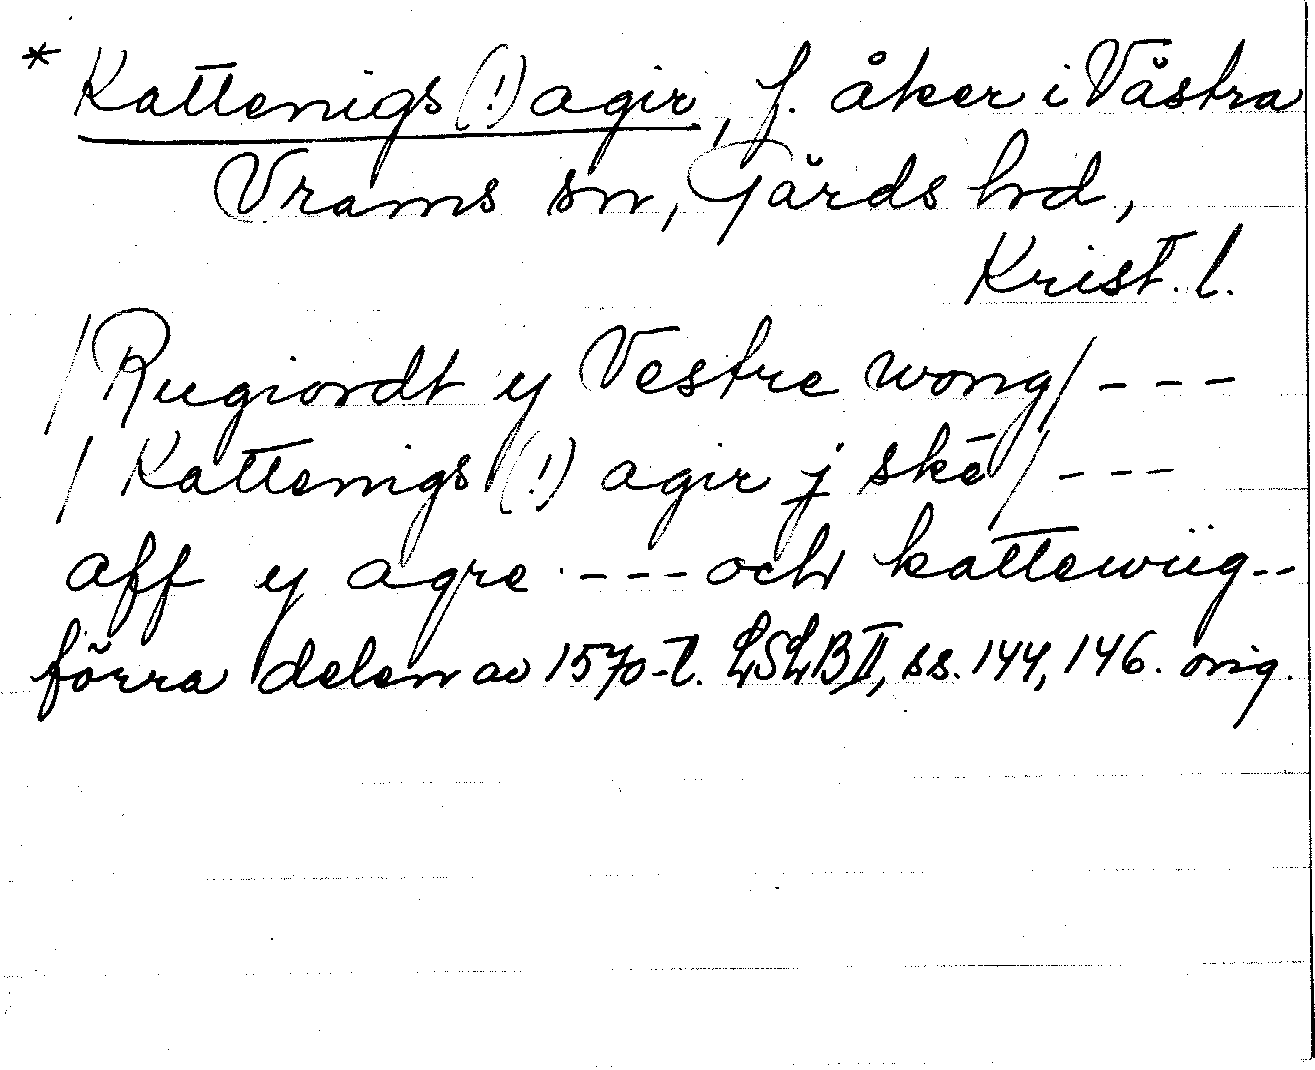 * Kattenigs (!) agir, f. åker i Västra
Vrams sn, Gärds hd,
Krist. l.
/Rugiordt y Vestre wong/ - - -
/ Kattenigs (!) agir j skē / - - -
aff y agre - - - och kattewiig - -
förra delen av 1570-t. LSLB II, ss. 144, 146. orig.